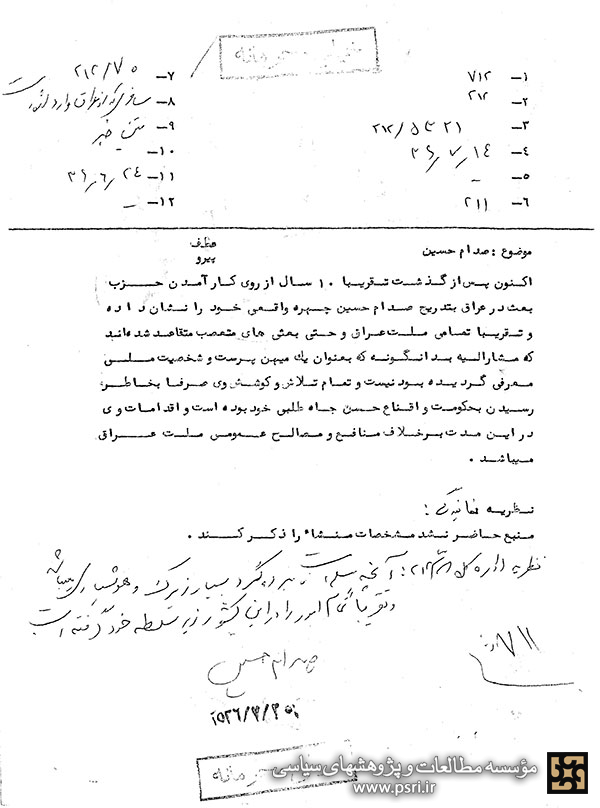 خیلی محرمانه
۱- ۷۱۲
۲- ۲۱۲
۳- ۲۱۲/۵۳۲۱
۴- ۳۶/۷/۱۴
۵- -
۶- ۲۱۱
۷- ۲۱۲/۷۰
۸-
۹- متن خبر
۱۰-
۱۱- ۳۶/۶/۲۴
۱۲- -
موضوع : صدام حسین
عطف
پیرو
اکنون پس از گذشت تقریبا ۱۰ سال از روی کار آمدن حزب
بعث در عراق بتدریج صدام حسین چهره واقعی خود را نشان داده
و تقریبا تمامی ملت عراق و حتی بعثی های متعصب متقاعد شده‌اند
که مشارالیه بدانگونه که بعنوان یك میهن پرست و شخصیت ملی
معرفی گردیده بود نیست و تمام تلاش و کوشش وی صرفا بخاطر
رسیدن بحکومت و اقناع حسن جاه طلبی خود بوده است و اقدامات وی
در این مدت برخلاف منافع و مصالح عمومی ملت عراق
میباشد .
نظریه نمایندگی :
منبع حاضر نشد مشخصات منشاء را ذکر کند .
نظریه اداره کل : آنچه مسلم است نامبرده گرد بسیار زیرک و هوشیاری میباشد
و تقریباً تمام امور را در این کشور زیر سلطه خود گرفته است
صدام حسین
۲۵۳۶/۳/۲۵
۷۱۱
محرمانه
مؤسسه مطالعات و پژوهشهای سیاسی
www.psri.ir